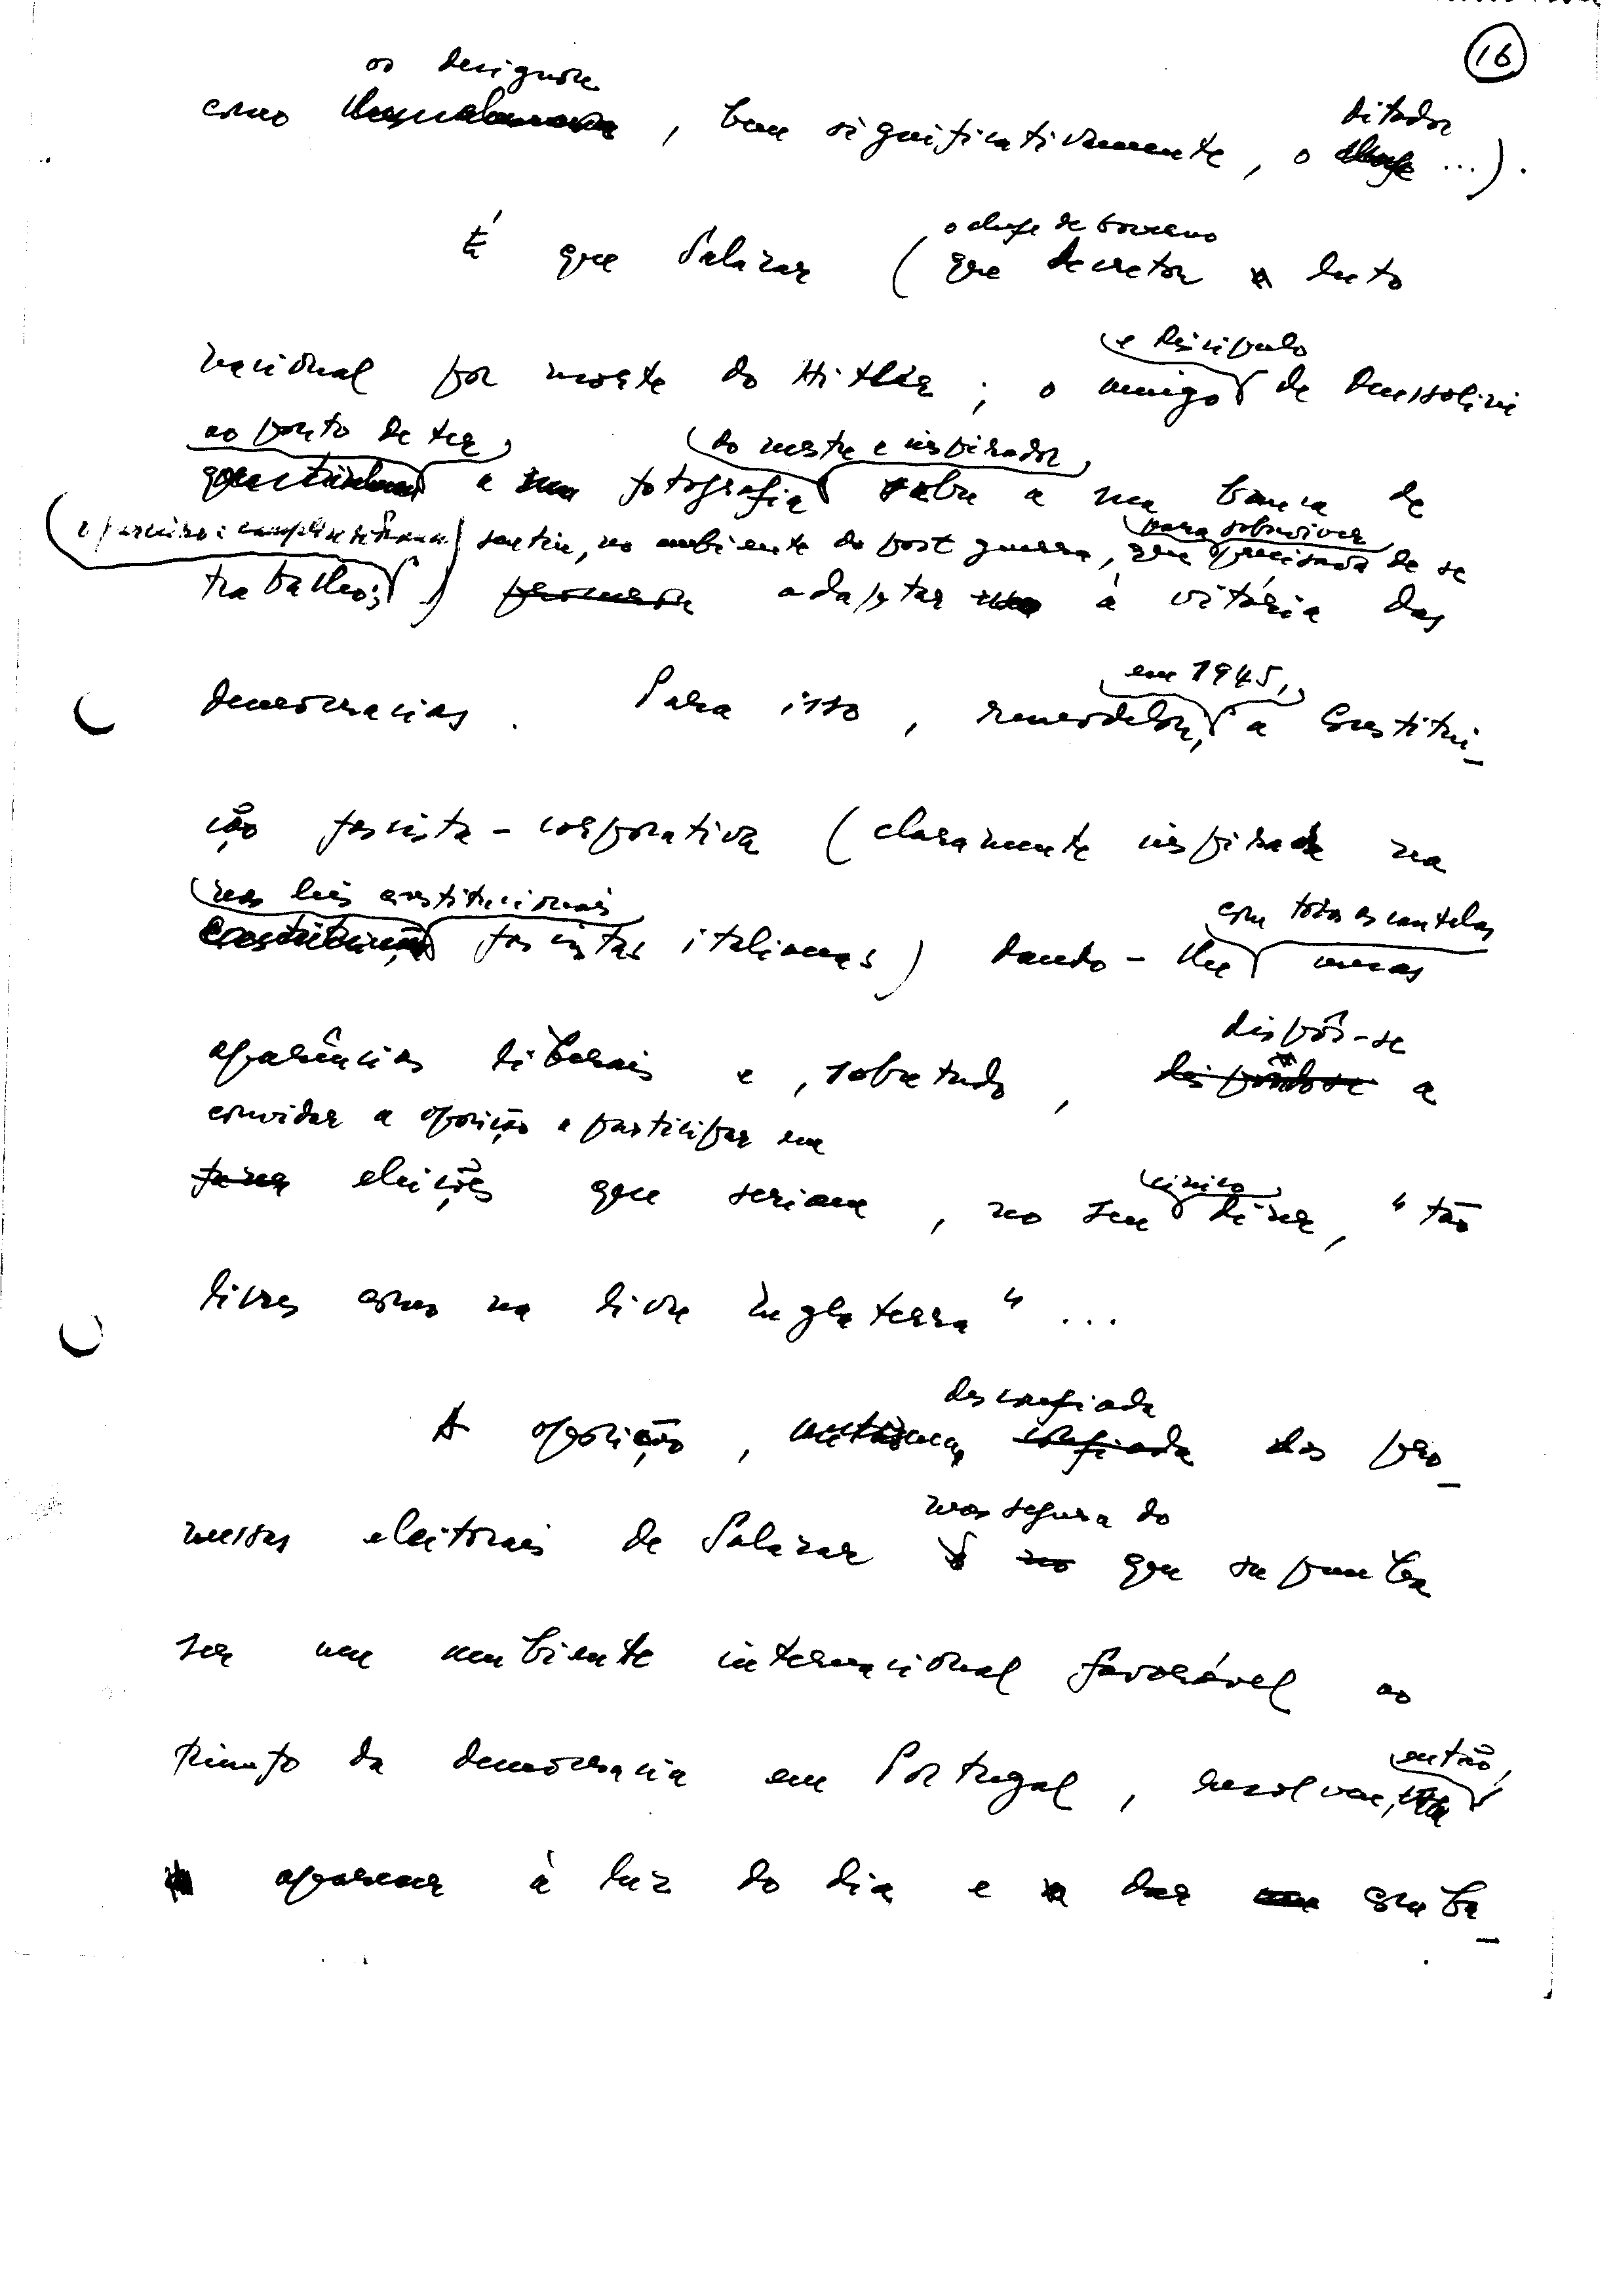 16
os designou
como , bem significativamente, o ditador ...).
o chefe de Governo
É que Salazar (que decretou luto
e discípulo
nacional por morte do Hitler; o amigo de Mussolini
ao ponto de ter do mestre e inspirador
a fotografia sobre a sua banca de
para sobreviver
sentiu, no ambiente do post guerra, que precisava de se
trabalho; ) adaptar à vitória das
em 1945,
democracias. Para isso, remodelou, a Constitui-
ção fascista-corporativa (claramente inspirada na
nas leis constitucionais com todas as cautelas
fascistas italianas) dando-lhe umas
dispôs-se
aparências liberais e, sobretudo, a
convidar a oposição a participar em
fazer eleições que seriam, no seu dizer, "tão
cínico
livres como na livre Inglaterra"...
desconfiada
A oposição, confiada das pro-
mas segura do
messas eleitorais de Salazar no que supunha
ser um ambiente internacional favorável ao
então,
triunfo da democracia em Portugal, resolveu,
aparecer à luz do dia e dar comba-